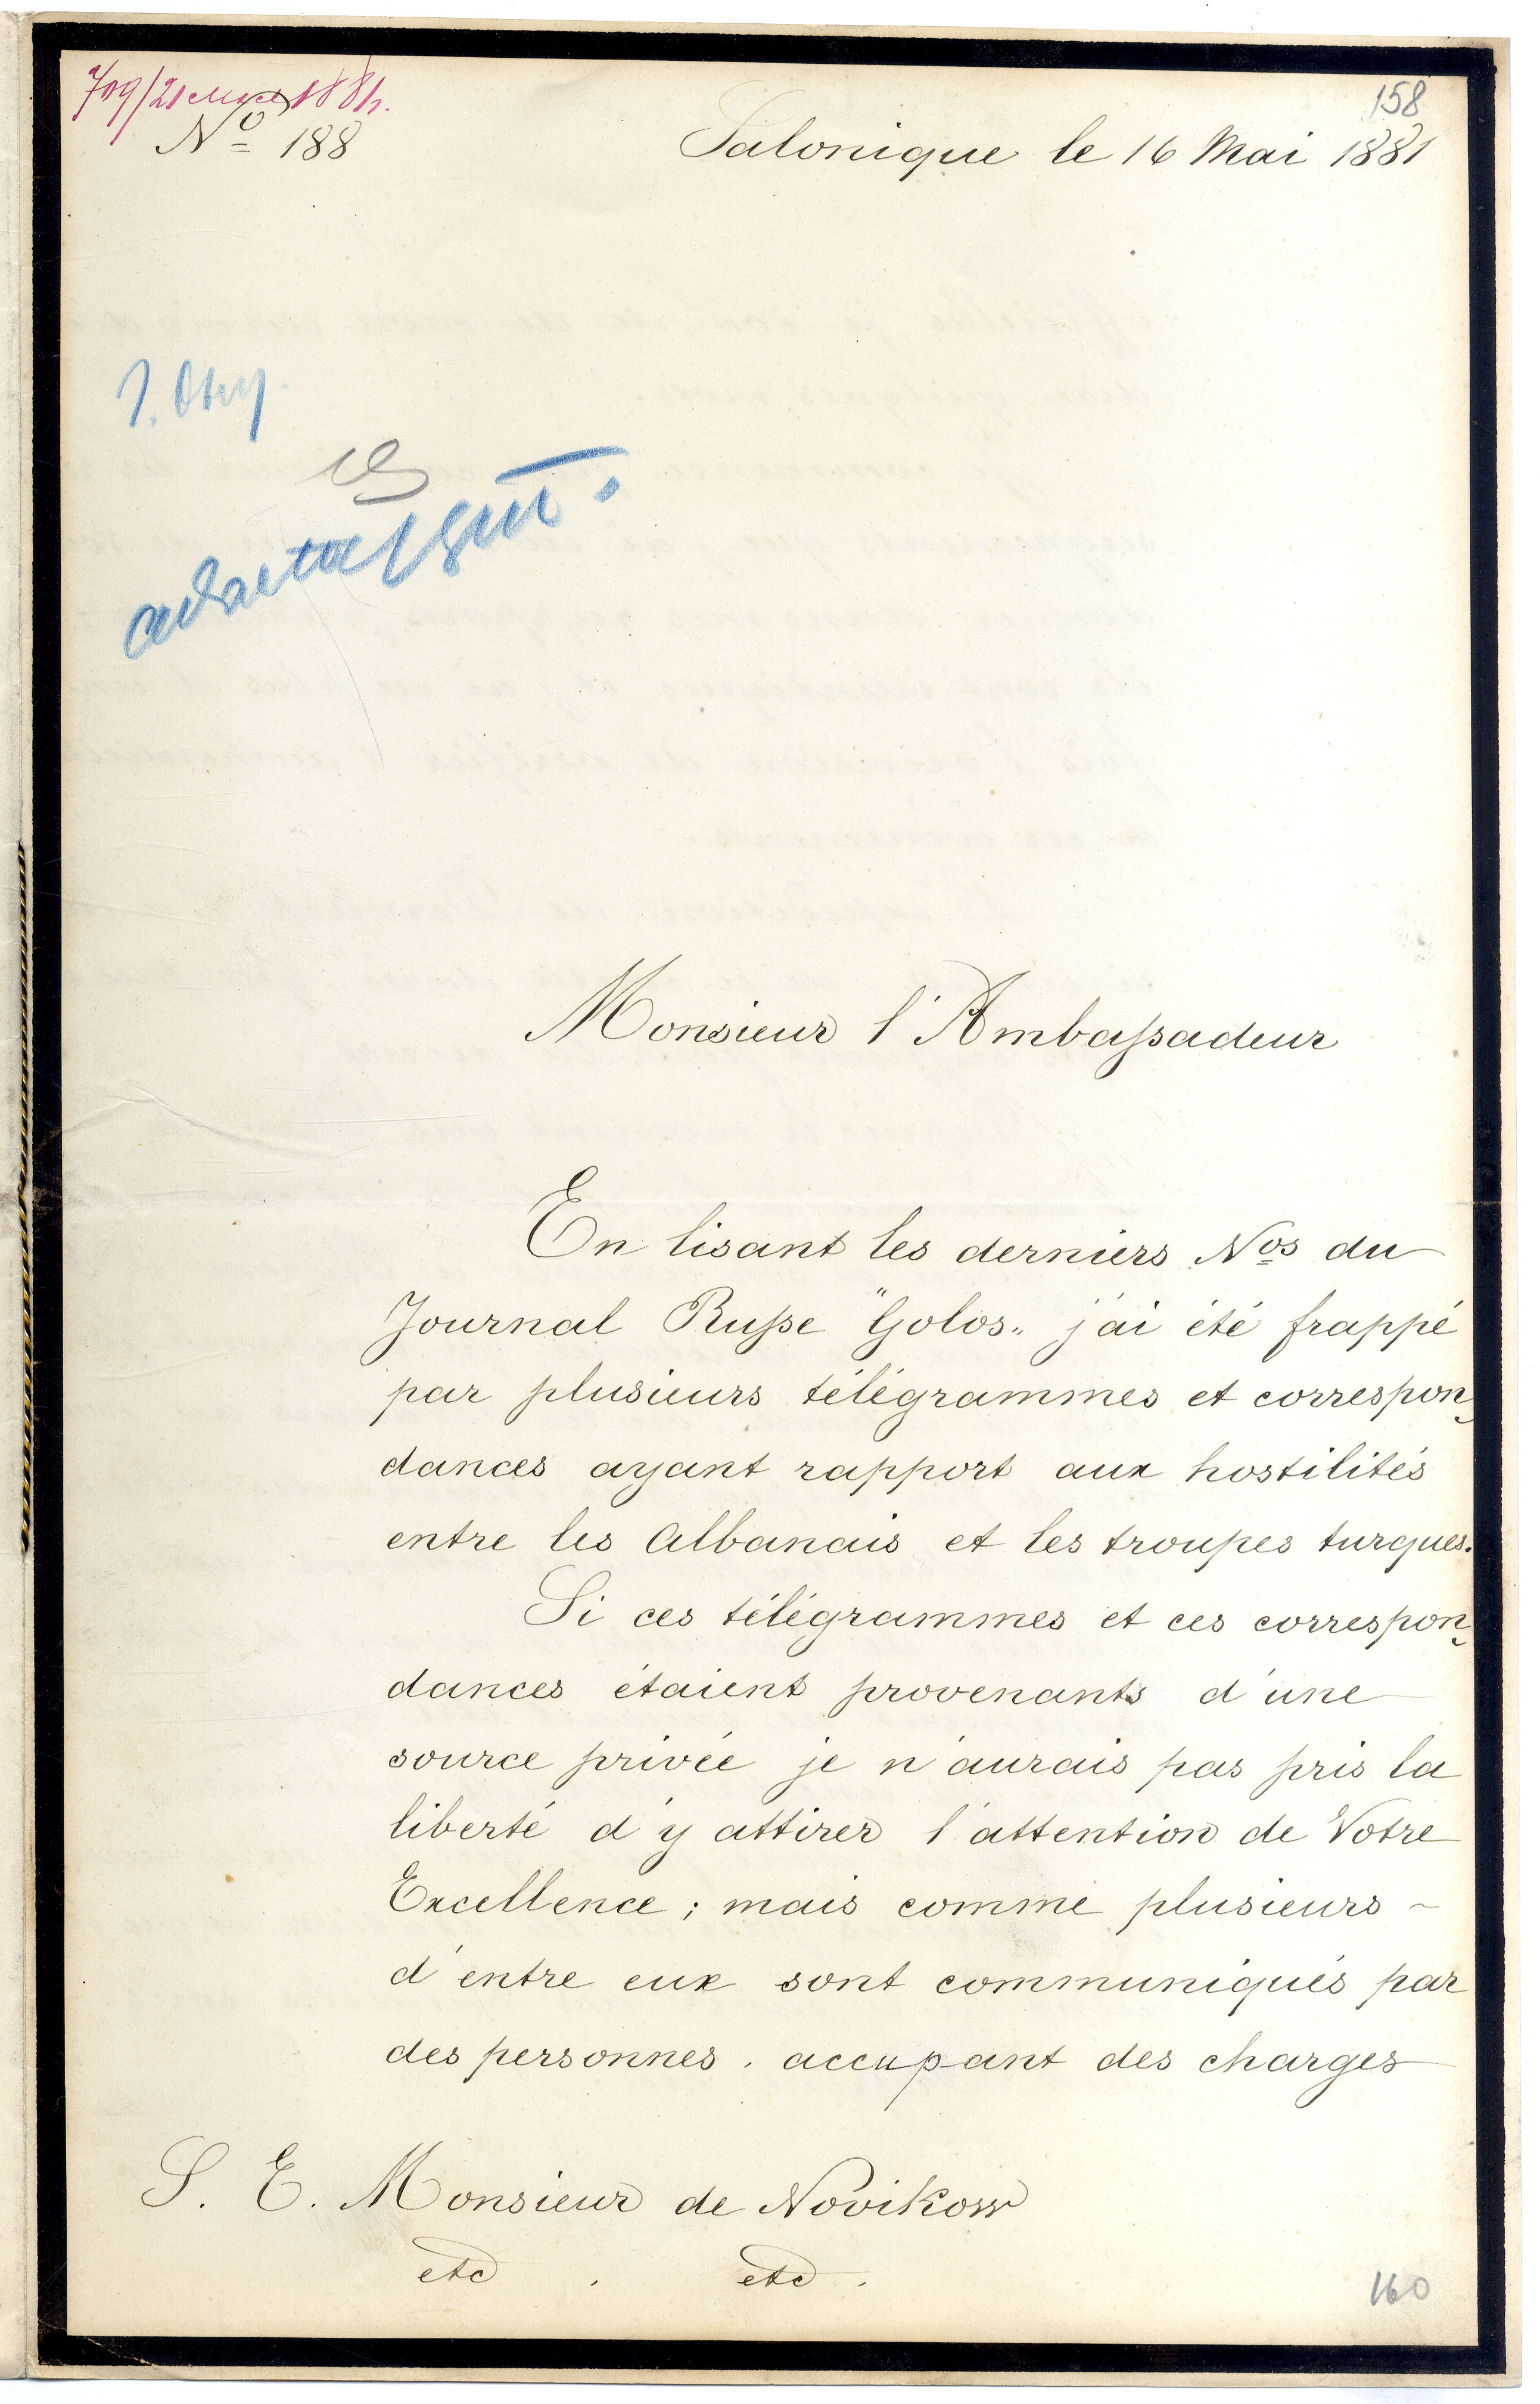 158
No 188
Salonique le 16 Mai 1881
Monsieur l'Ambassadeur
En lisant les derniers Nos du
Journal Russe "Golos" j'ai été frappé
par plusieurs télégrammes et correspon-
dances ayant rapport aux hostilités
entre les Albanais et les troupes turques.
Si ces télégrammes et ces correspon-
dances étaient provenants d'une
source privée je n'aurais pas pris la
liberté d'y attirer l'attention de Votre
Excellence; mais comme plusieurs
d'entre eux sont communiqués par
des personnes, accupant des charges
S. E. Monsieur de Novikow
etc. etc.
160